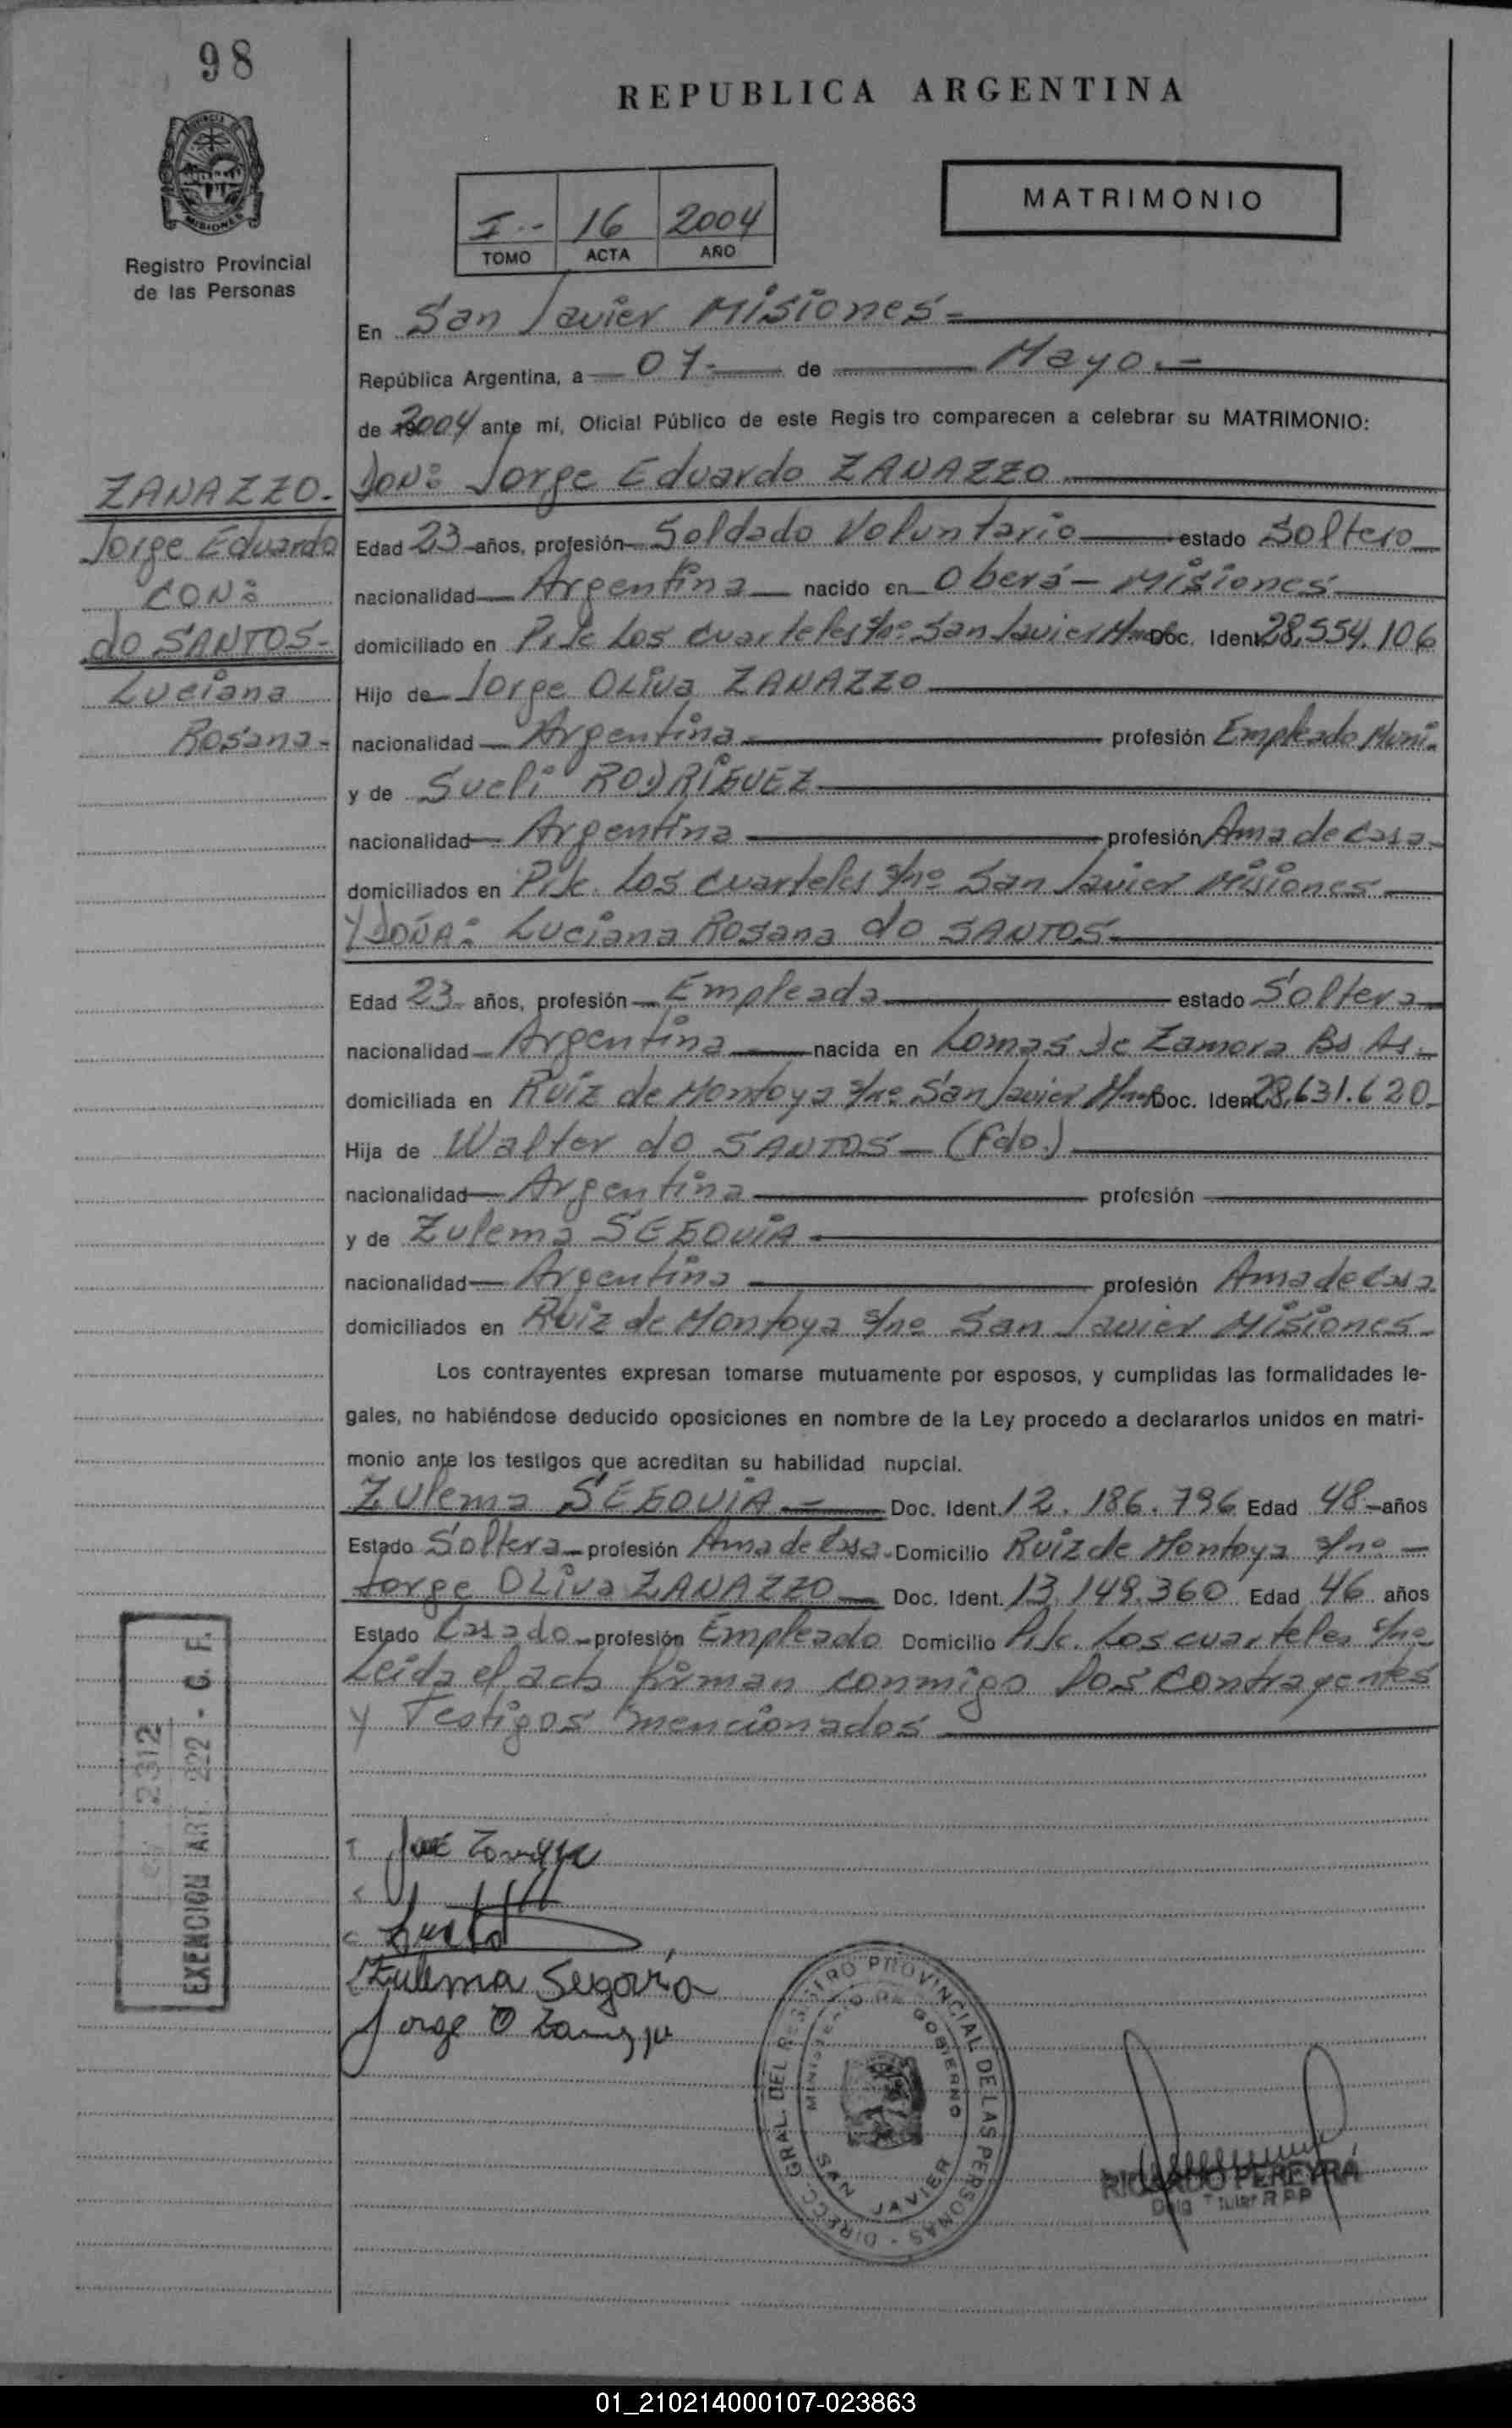 98
REPUBLICA ARGENTINA
MISIONES
Registro Provincial
de las Personas
MATRIMONIO
I.-- 16 2004
TOMO ACTA AÑO
En San Javier Misiones=
República Argentina, a 07- de Mayo.=
de 2004 ante mí, Oficial Público de este Regis tro comparecen a celebrar su MATRIMONIO:
ZANAZZO.-
Jorge Eduardo
CON:
do SANTOS-
Luciana
Rosana-
DON: Jorge Eduardo ZANAZZO
Edad 23 años, profesión Soldado Voluntario estado Soltero
nacionalidad Argentina nacido en Oberá - Misiones
domiciliado en Pje Los Cuarteles s/nº San Javier Mnes Doc. Ident 28,554.106
Hijo de Jorge OLiva ZANAZZO
nacionalidad Argentina profesión Empleado Muni.
y de Sueli RODRÍGUEZ
nacionalidad Argentina profesión Ama de Casa-
domiciliados en Pje. Los Cuarteles s/nº San Javier Misiones
Y DOÑA: Luciana Rosana do SANTOS-
Edad 23- años, profesión Empleada estado Soltera
nacionalidad Argentina nacida en Lomas de Zamora Bs As-
domiciliada en Ruiz de Montoya s/nº San Javier Mnes Doc. Ident 28,631.620-
Hija de Walter do SANTOS - (Fdo.)
nacionalidad Argentina profesión
y de Zulema SEGOVIA
nacionalidad Argentina profesión Ama de Casa
domiciliados en Ruiz de Montoya s/nº San Javier Misiones-
Los contrayentes expresan tomarse mutuamente por esposos, y cumplidas las formalidades le-
gales, no habiéndose deducido oposiciones en nombre de la Ley procedo a declararlos unidos en matri-
monio ante los testigos que acreditan su habilidad nupcial.
Zulema SEGOVIA.= Doc. Ident. 12.186.796 Edad 48 años
Estado Soltera profesión Ama de Casa- Domicilio Ruiz de Montoya s/nº -
Jorge OLiva ZANAZZO Doc. Ident. 13.149.360 Edad 46 años
Estado Casado profesión Empleado Domicilio Pje. Los Cuarteles s/nº
Leida el acta firman conmigo los contrayentes
y Testigos mencionados
2312
EXENCION ART. 222 - C. F.
Zulema Segovia
Jorge O Zanazzo
DIRECC. GRAL. DEL REGISTRO PROVINCIAL DE LAS PERSONAS
MINISTERIO DE GOBIERNO
SAN JAVIER
RICARDO PEREYRA
Deleg Titular R P P
01_210214000107-023863